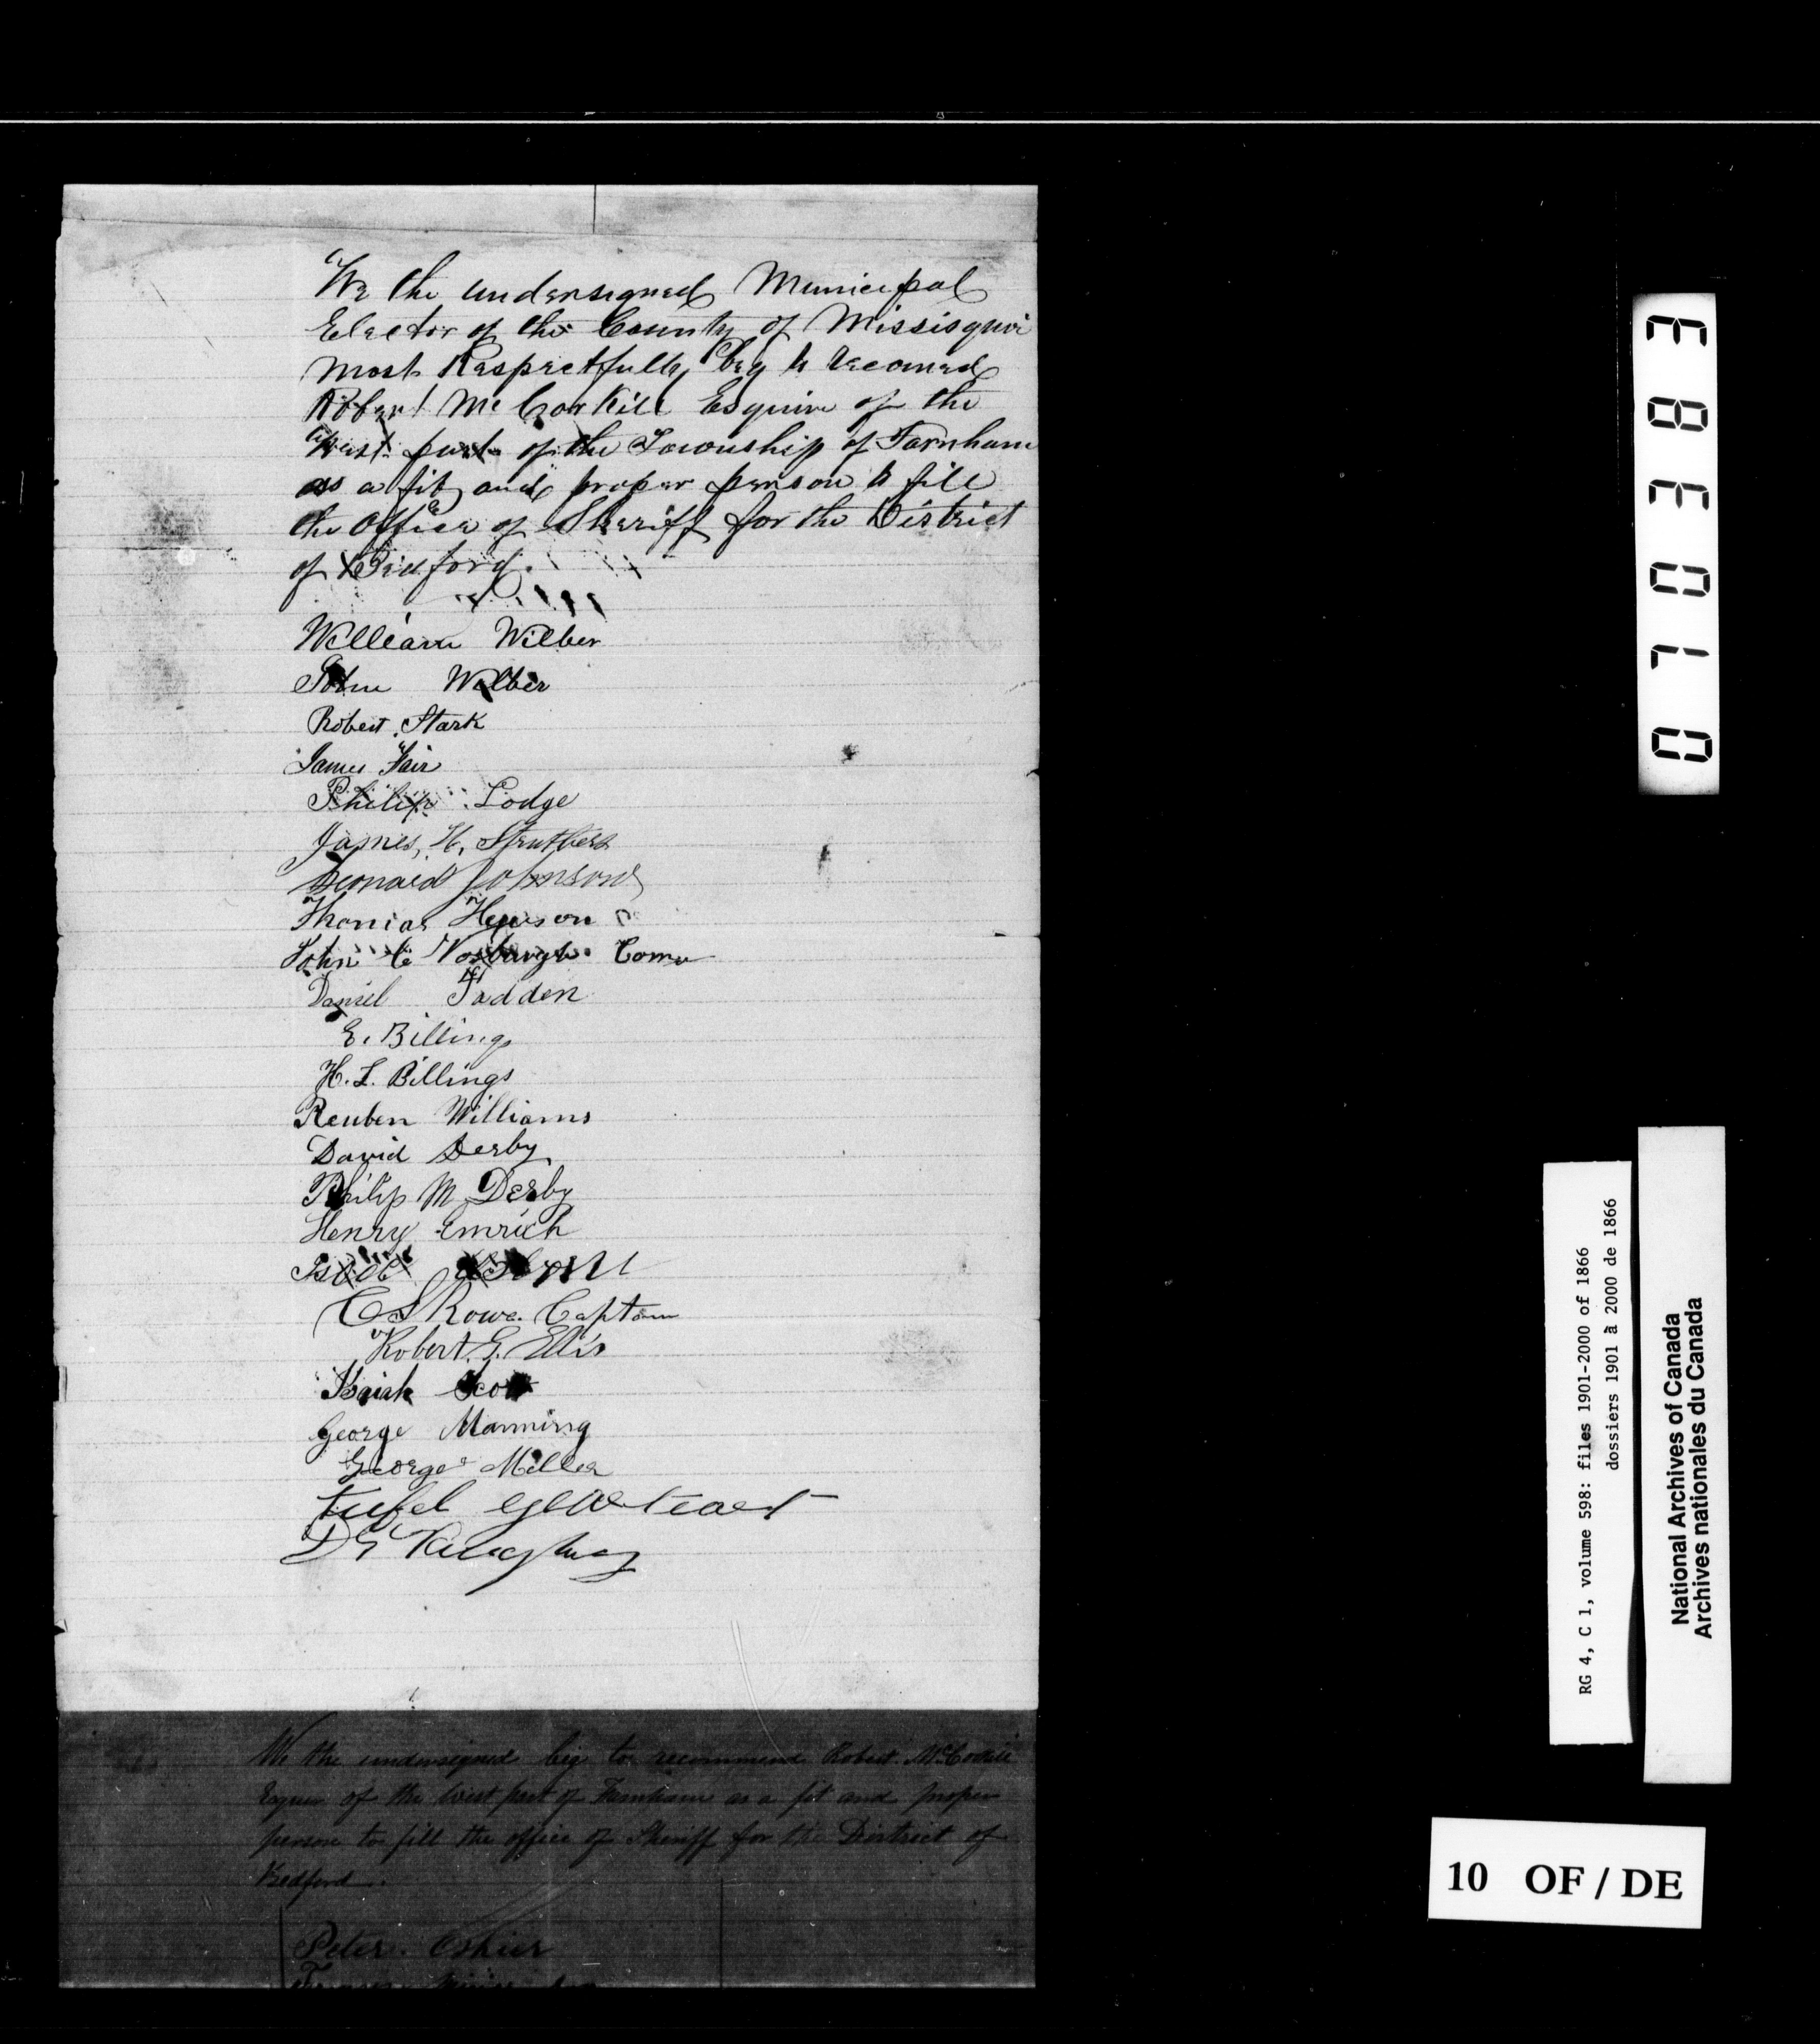 We the undersigned Municipal
Elector of the County of Missisquoi
most Respectfully beg to recomend
Robert McCorkill Esquire of the
West part of the Township of Farnham
as a fit and proper person to fill
the Office of Sheriff for the District
of Bedford.
William Wilber
John Wilber
Robert Stark
James Fair
Philip Lodge
James, H, Struthers
Leonard Johnson
Thomas Hewson
John C Vosburgh Comr
Daniel Fadden
E. Billings
H. L. Billings
Reuben Williams
David Derby
Philip M Derby
Henry Emrich
C S Rowe Captain
Robert G. Ellis
Isaiah Scott
George Manning
George Miller
We the undersigned beg to recommend Robert McCorkill
Esquire of the West part of Farnham as a fit and proper
person to fill the office of Sheriff for the District of
Bedford.
Peter Oshier
0710383
RG 4, C 1, volume 598: files 1901-2000 of 1866
dossiers 1901 à 2000 de 1866
National Archives of Canada
Archives nationales du Canada
10 OF / DE